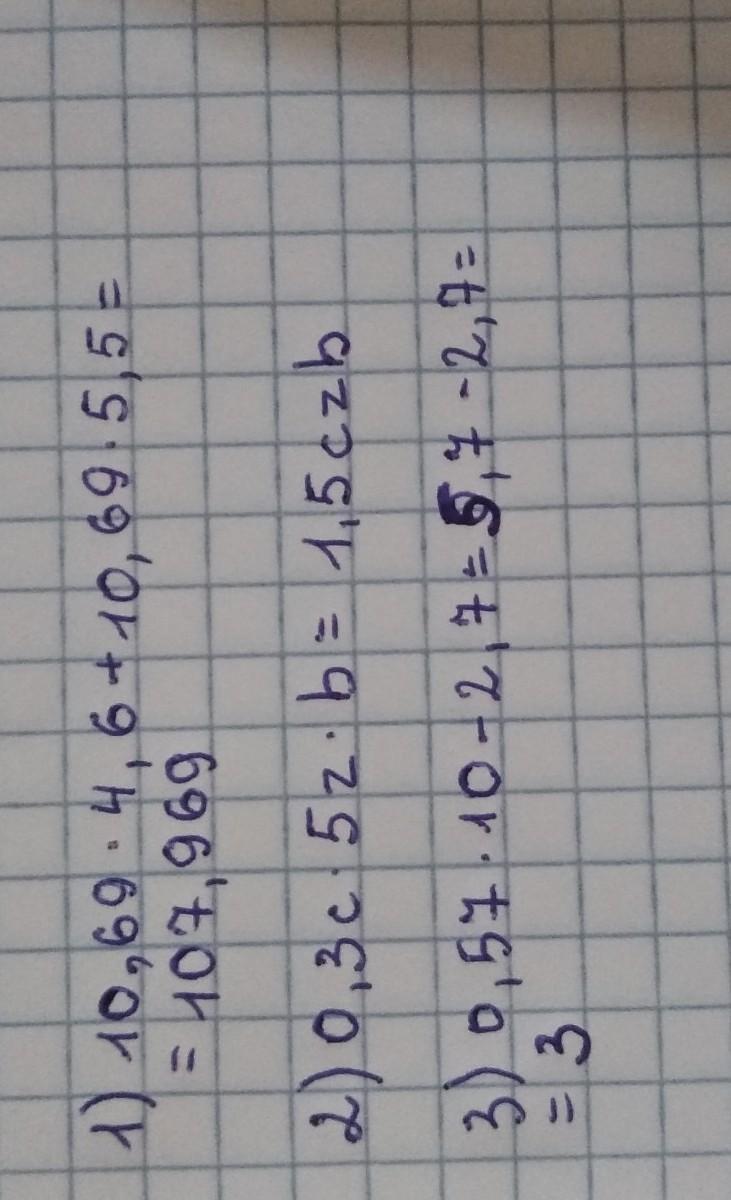 1) 10,69 · 4,6 + 10,69 · 5,5 =
= 107,969
2) 0,3c · 5z · b = 1,5czb
3) 0,57 · 10 - 2,7 = 5,7 - 2,7 =
= 3